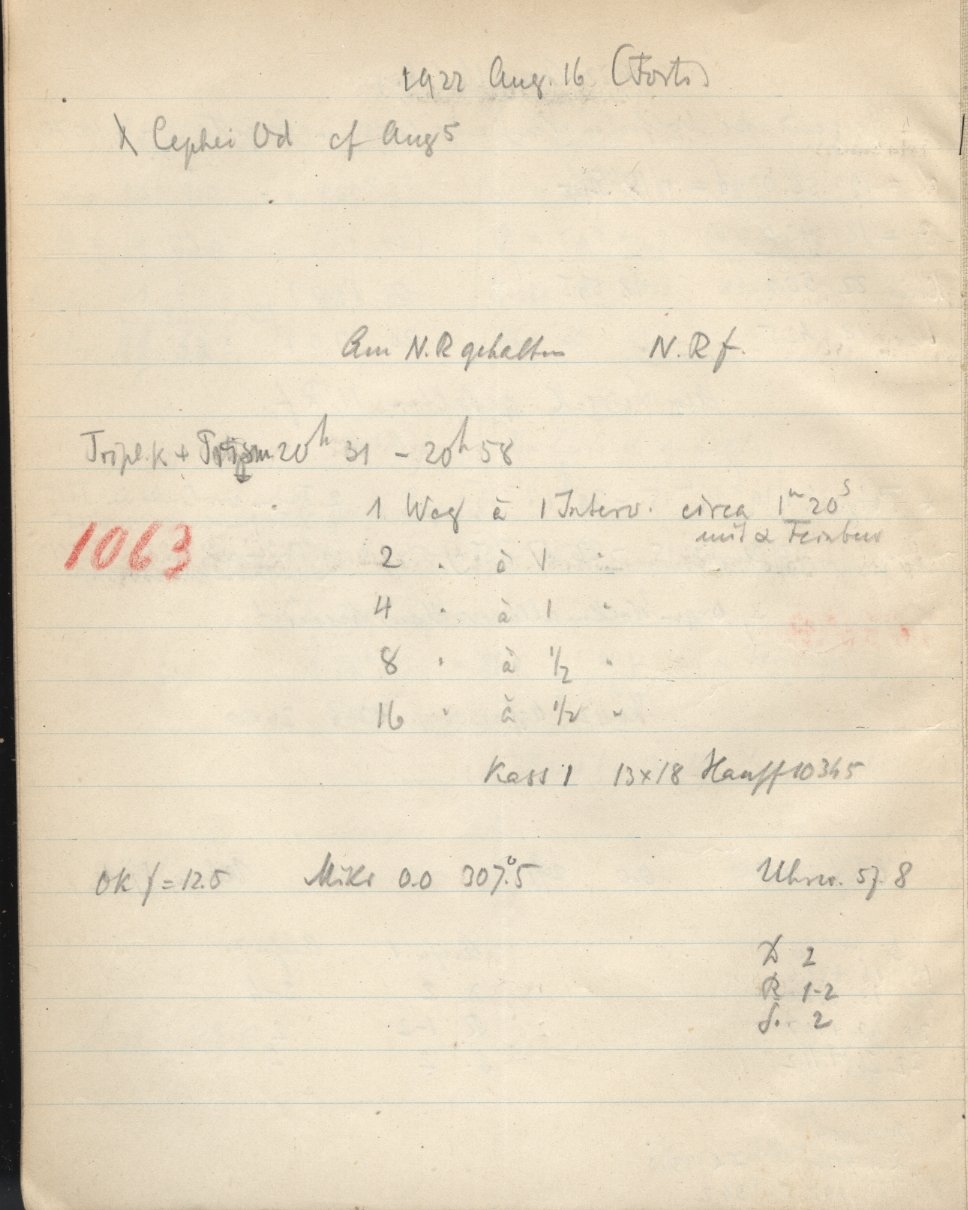 1922 Aug. 16 (Forts)
λ Cephei Od cf Aug 5
Am N.R gehalten N.R f.
Tripl.K + Prism 20h 31 - 20h 58
1 Weg à 1 Interv. circa 1m 20s
mit α Feinbew
1063
2 " à 1 "
4 " à 1 "
8 " à 1/2 "
16 " à 1/2 "
Kass 1 13x18 Hauff 10345
OK f = 12.5 Mikr 0.0 307°.5 Uhrw. 57.8
D 2
R 1-2
S. 2